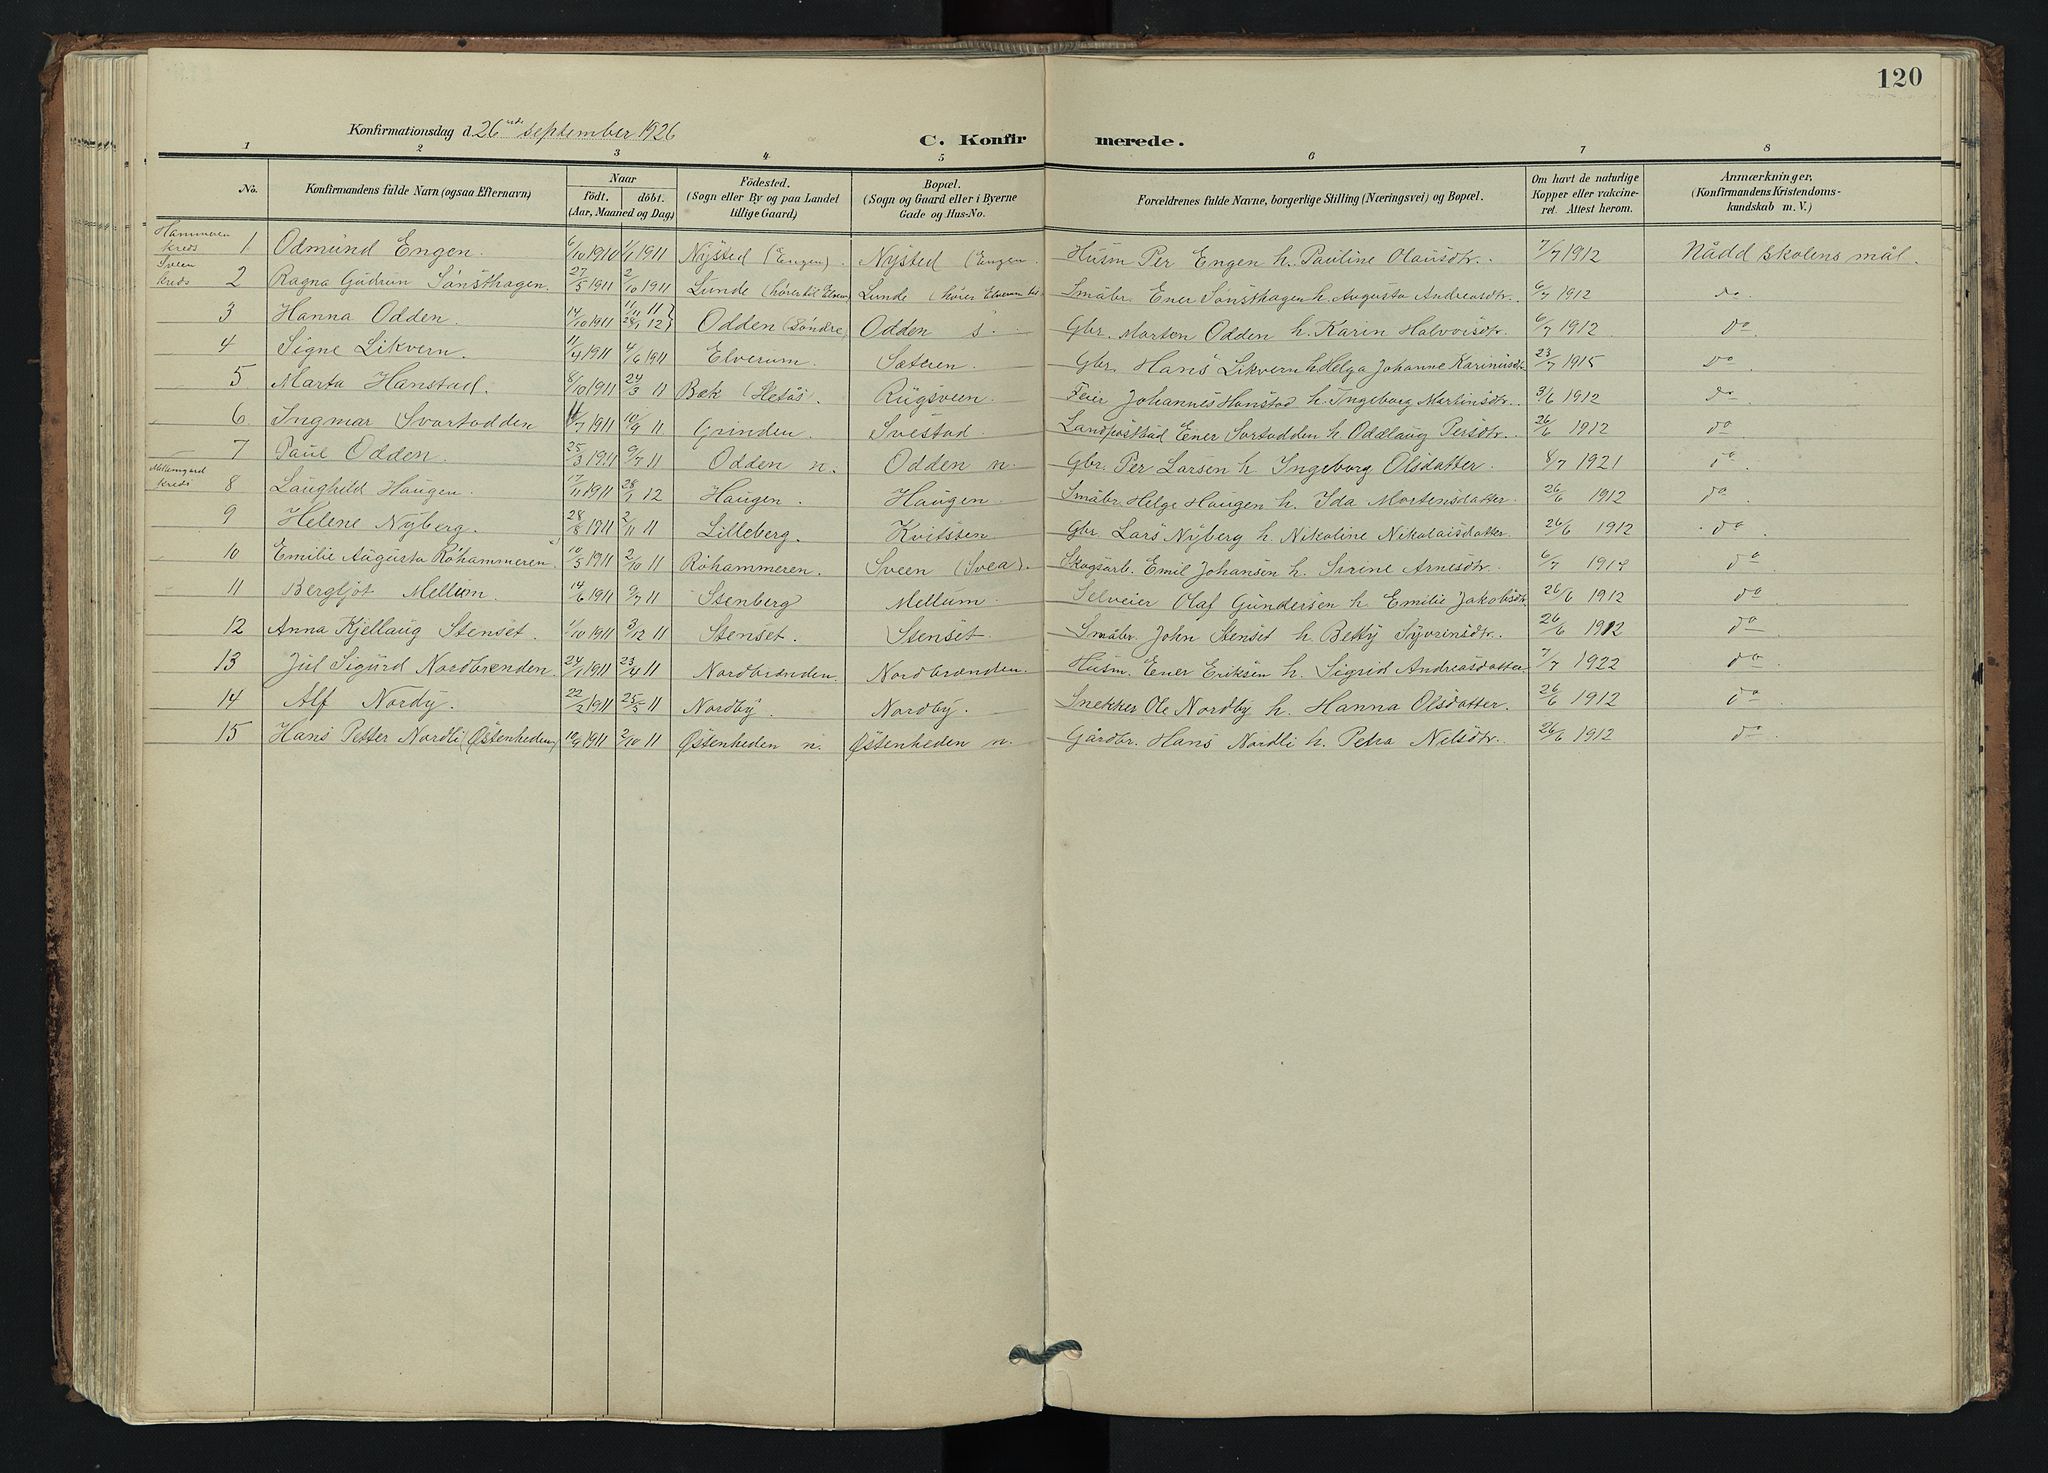 120
Konfirmationsdag d. 26 september 1926
C. Konfirmerede.
1 2 3 4 5 6 7 8
No. Konfirmandens fulde Navn (ogsaa Efternavn) Naar födt. döbt. (Aar, Maaned og Dag) Födested. (Sogn eller By og paa Landet tillige Gaard) Bopæl. (Sogn og Gaard eller i Byerne Gade og Hus-No. Forældrenes fulde Navne, borgerlige Stilling (Næringsvei) og Bopæl. Om havt de naturlige Kopper eller vakcineret. Attest herom. Anmærkninger, (Konfirmandens Kristendomskundskab m. V.)
Hammeren kreds 1 Odmund Engen. 6/10 1910 1/1 1911 Nysted (Engen). Nysted (Engen. Husm Per Engen h. Pauline Olausdtr. 7/7 1912 Nådd skolens mål.
Sveen kreds 2 Ragna Gudrun Sønsthagen. 27/5 1911 2/10 1911 Lunde (hører til Elverum) Lunde (hører Elverum til) Småbr. Ener Sønsthagen h. Augusta Andreasdtr. 6/7 1912 do
3 Hanna Odden. 14/10 1911 11/11 11 28/1 12 } Odden (Søndre) Odden s. Gbr. Morten Odden h. Karin Halvorsdtr. 6/7 1912 do
4 Signe Likvern. 11/4 1911 4/6 1911 Elverum. Sæteren. Gbr. Hans Likvern h Helga Johanne Karinusdtr 23/7 1915 do
5 Marta Hanstad. 8/10 1911 24/3 11 Bæk (Hetås). Rugsveen. Feier Johannes Hanstad h. Ingeborg Martinsdtr. 3/6 1912 do
6 Ingmar Svartodden /7 1911 10/9 11 Grinden. Svestad. Landpostbud Ener Sortodden h. Oddlaug Persdtr. 26/6 1912 do
7 Paul Odden. 25/3 1911 9/7 11 Odden n. Odden n. Gbr. Per Larsen h. Ingeborg Olsdatter. 8/7 1921 do
kreds 8 Laughild Haugen. 17/11 1911 28/1 12 Haugen. Haugen. Småbr. Helge Haugen h. Ida Mortensdatter. 26/6 1912 do
9 Helene Nyberg. 28/8 1911 2/11 11 Lilleberg. Kvitsten. Gbr Lars Nyberg h Nikoline Nikolaisdatter. 26/6 1912 do
10 Emilie Augusta Röhammeren. 10/5 1911 2/10 11 Röhammeren. Sveen (Svea). Skogsarb. Emil Johansen h. Sirine Arnesdtr. 6/7 do
11 Bergljot Mellum. 14/6 1911 9/7 11 Stenberg Mellum. Selveier Olaf Gundersen h Emilie Jakobsdtr 26/6 1912 do
12 Anna Kjellaug Stenset. 1/10 1911 3/12 11 Stenset. Stenset. Småbr. John Stenset h. Betty Syvrinsdtr. 26/6 1912 do
13 Jul Sigurd Nordbrenden. 24/1 1911 23/4 11 Nordbrænden. Nordbrænden. Husm. Ener Eriksen h. Sigrid Andreasdatter 7/7 1922 do
14 Alf Nordy. 22/2 1911 25/3 11 Nordby. Nordby. Snekker Ole Nordby h. Hanna Olsdatter. 26/6 1912 do
15 Hans Petter Nordli (Østenheden) 10/9 1911 2/10 11 Østenheden n. Østenheden n. Gårdbr. Hans Nordli h. Petra Nilsdtr. 26/6 1912 do